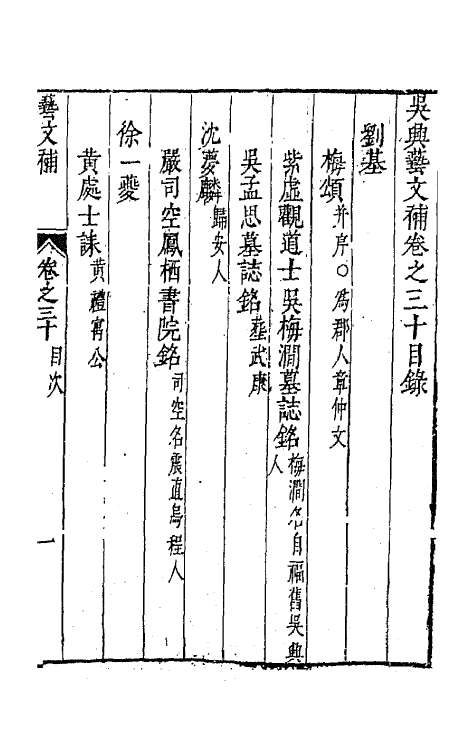 吳興藝文補卷之三十目錄
劉基
梅頌并序○爲郡人章仲文
紫虛觀道士吳梅澗墓誌銘梅澗名自福舊吳興人
吳孟思墓誌銘葬武康
沈夢麟歸安人
嚴司空鳳栖書院銘司空名震直烏程人
徐一夔
黃處士誄黃禮富公
藝文補 卷之三十 目次 一